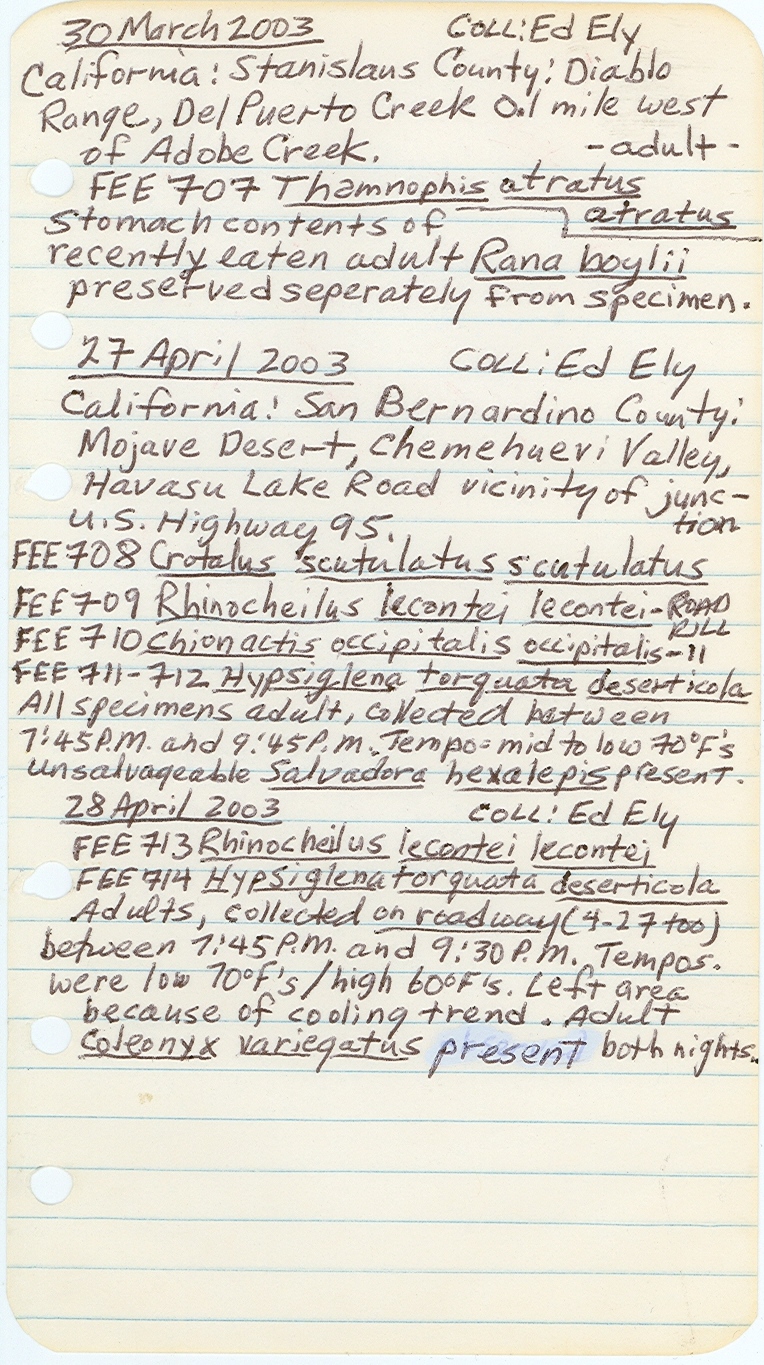 30 March 2003 COLL: Ed Ely
California: Stanislaus County: Diablo
Range, Del Puerto Creek 0.1 mile west
of Adobe Creek. -adult-
FEE 707 Thamnophis atratus
atratus
Stomach contents of
recently eaten adult Rana boylii
preserved seperately from specimen.
27 April 2003 COLL: Ed Ely
California: San Bernardino County:
Mojave Desert, Chemehuevi Valley,
Havasu Lake Road vicinity of junc-
tion
U.S. Highway 95.
FEE 708 Crotalus scutulatus scutulatus
FEE 709 Rhinocheilus lecontei lecontei-ROAD
KILL
FEE 710 Chionactis occipitalis occipitalis-11
FEE 711-712 Hypsiglena torquata deserticola
All specimens adult, collected between
7:45P.M. and 9:45P.M. Tempo= mid to low 70°F's
Unsalvageable Salvadora hexalepis present.
28 April 2003 COLL: Ed Ely
FEE 713 Rhinocheilus lecontei lecontei
FEE 714 Hypsiglena torquata deserticola
Adults, collected on roadway (4-27 too)
between 7:45P.M. and 9:30P.M. Tempos.
were low 70°F's / high 60°F's. Left area
because of cooling trend. Adult
Coleonyx variegatus present both nights.